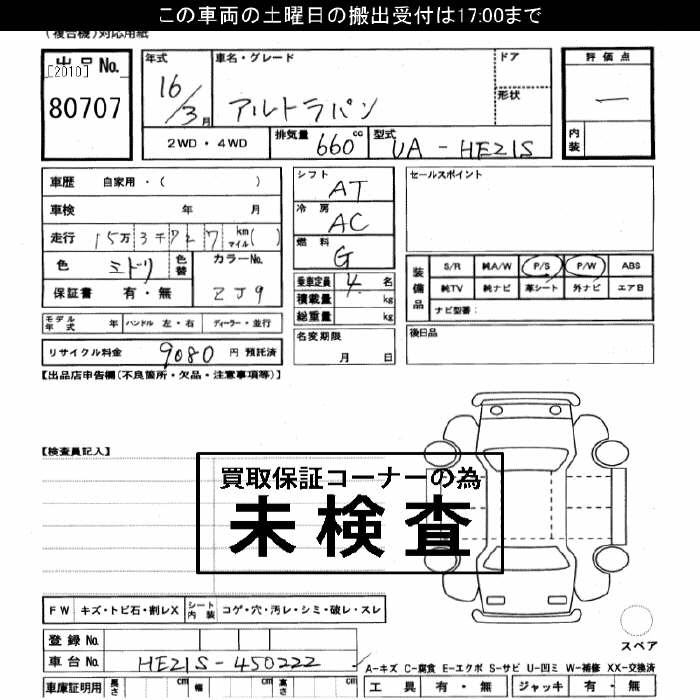 この車両の土曜日の搬出受付は17:00まで
(複合機)対応用紙
出品No.
[2010]
80707
年式
16/3月
車名・グレード
アルトラパン
ドア
形状
評価点
―
内装
2WD・4WD
排気量 660 cc
型式 UA-HE21S
車歴 自家用・( )
車検 年 月
走行 15万3千727 km マイル( )
色 ミドリ 色替
カラーNo.
ZJ9
保証書 有・無
シフト
AT
冷房
AC
燃料
G
乗車定員 4 名
積載量 kg
総重量 kg
セールスポイント
装備品
S/R 純A/W P/S P/W ABS
純TV 純ナビ 革シート 外ナビ エアB
ナビ型番:
モデル年式 年 ハンドル 左・右 ディーラー・並行
リサイクル料金 9080 円 預託済
名変期限
月 日
後日品
【出品店申告欄(不良箇所・欠品・注意事項等)】
【検査員記入】
買取保証コーナーの為
未検査
FW キズ・トビ石・割レX シート内装 コゲ・穴・汚レ・シミ・破レ・スレ
登録No.
車台No. HE21S-450222
スペア
A-キズ C-腐食 E-エクボ S-サビ U-凹ミ W-補修 XX-交換済
車庫証明用 長さ cm 幅 cm 高さ cm
工具 有・無 ジャッキ 有・無